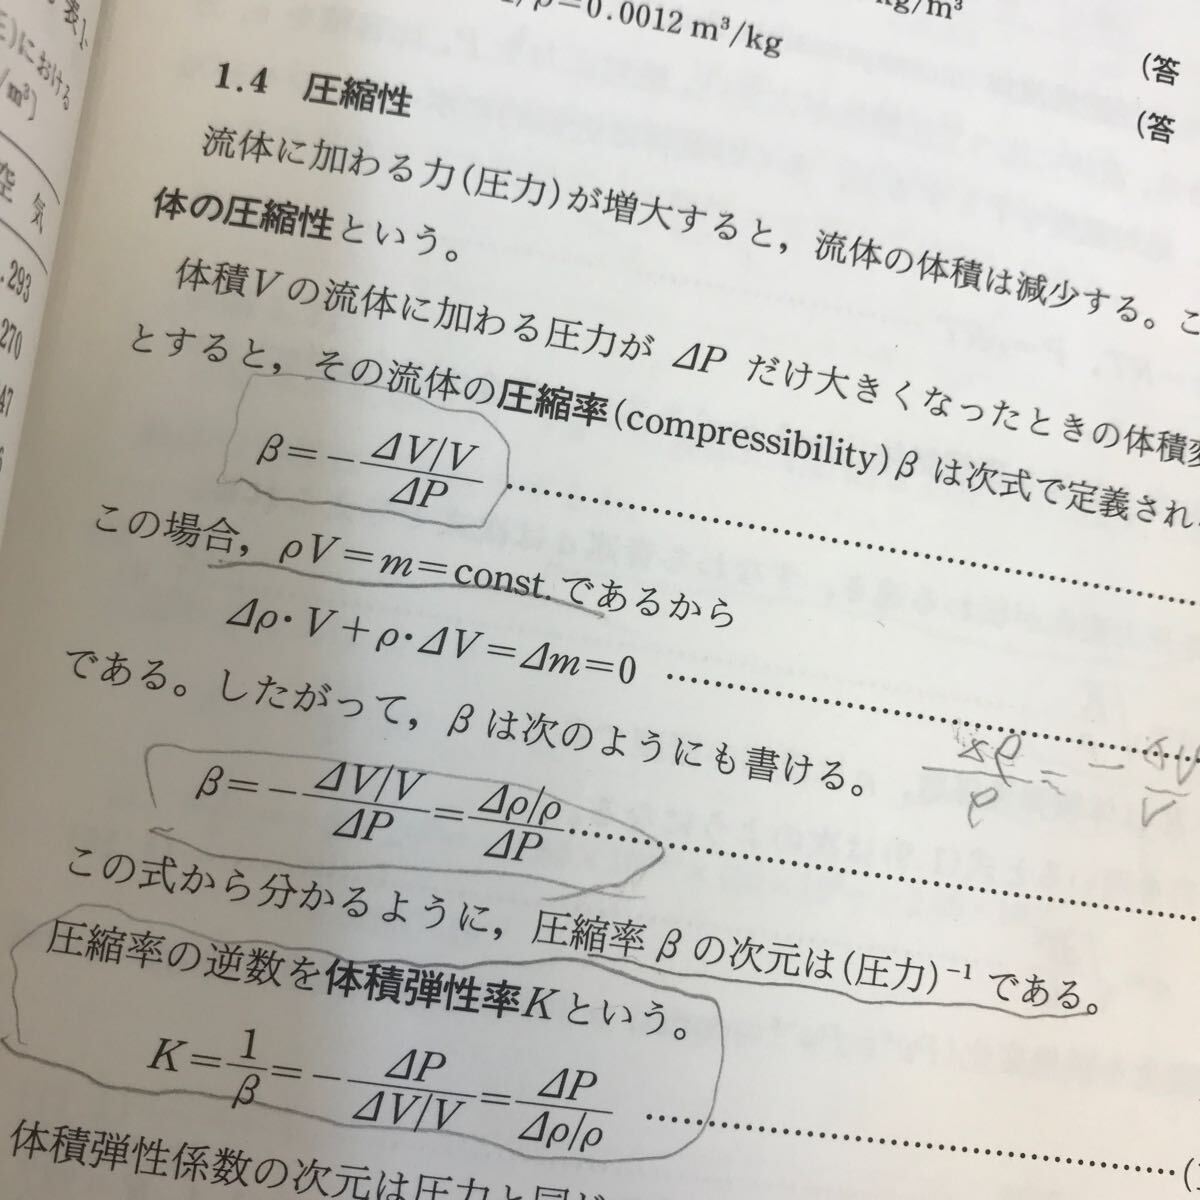 1/ρ=0.0012 m³/kg
kg/m³
(答
(答
1.4 圧縮性
流体に加わる力(圧力)が増大すると，流体の体積は減少する。こ
体の圧縮性という。
体積Vの流体に加わる圧力が ΔP だけ大きくなったときの体積変
とすると，その流体の圧縮率(compressibility)βは次式で定義され
β=-(ΔV/V)/ΔP
この場合，ρV=m=const.であるから
Δρ·V+ρ·ΔV=Δm=0
である。したがって，βは次のようにも書ける。
β=-(ΔV/V)/ΔP=(Δρ/ρ)/ΔP
この式から分かるように，圧縮率βの次元は(圧力)⁻¹である。
圧縮率の逆数を体積弾性率Kという。
K=1/β=-ΔP/(ΔV/V)=ΔP/(Δρ/ρ)
体積弾性係数の次元は圧力と同じ
における
/m³)
空気
.293
270
47